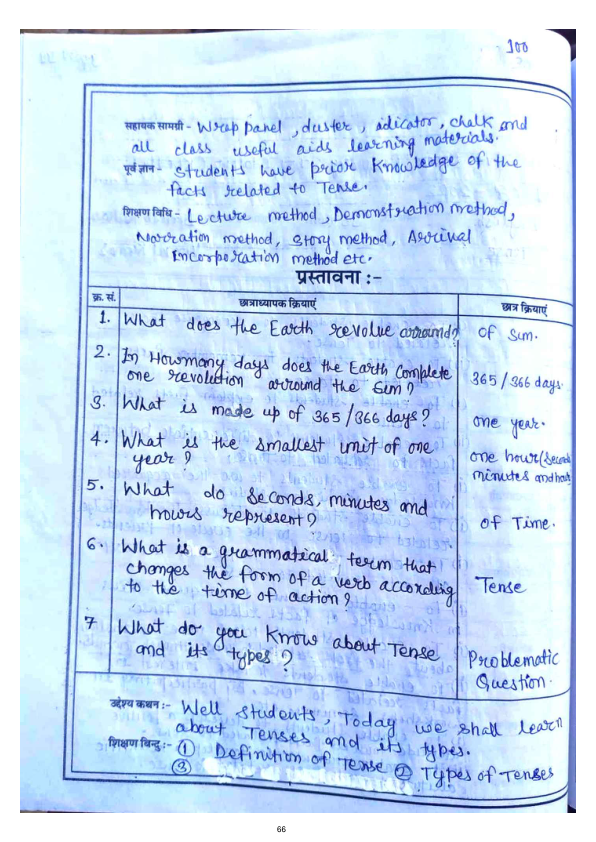 100
सहायक सामग्री - Wrap panel, duster, idicator, chalk and
all class useful aids learning materials.
पूर्व ज्ञान - Students have prior Knowledge of the
facts related to Tense.
शिक्षण विधि - Lecture method, Demonstration method,
Narration method, story method, Arrival
Incorporation method etc.
प्रस्तावना :-
क्र. सं. छात्राध्यापक क्रियाएं छात्र क्रियाएं
1. What does the Earth revolve arround? Of Sun.
2. In Howmany days does the Earth Complete
one revolution arround the Sun? 365/366 days.
3. What is made up of 365/366 days? One year.
4. What is the smallest unit of one
year? one hour (Seconds
minutes and
5. What do seconds, minutes and
hours represent? of Time.
6. What is a grammatical term that
changes the form of a verb according
to the time of action? Tense
7 What do you Know about Tense
and its types? Problematic
Question.
उद्देश्य कथन :- Well students, Today we shall learn
about Tenses and its types.
शिक्षण बिन्दु :- ① Definition of Tense ② Types of Tenses
③
66